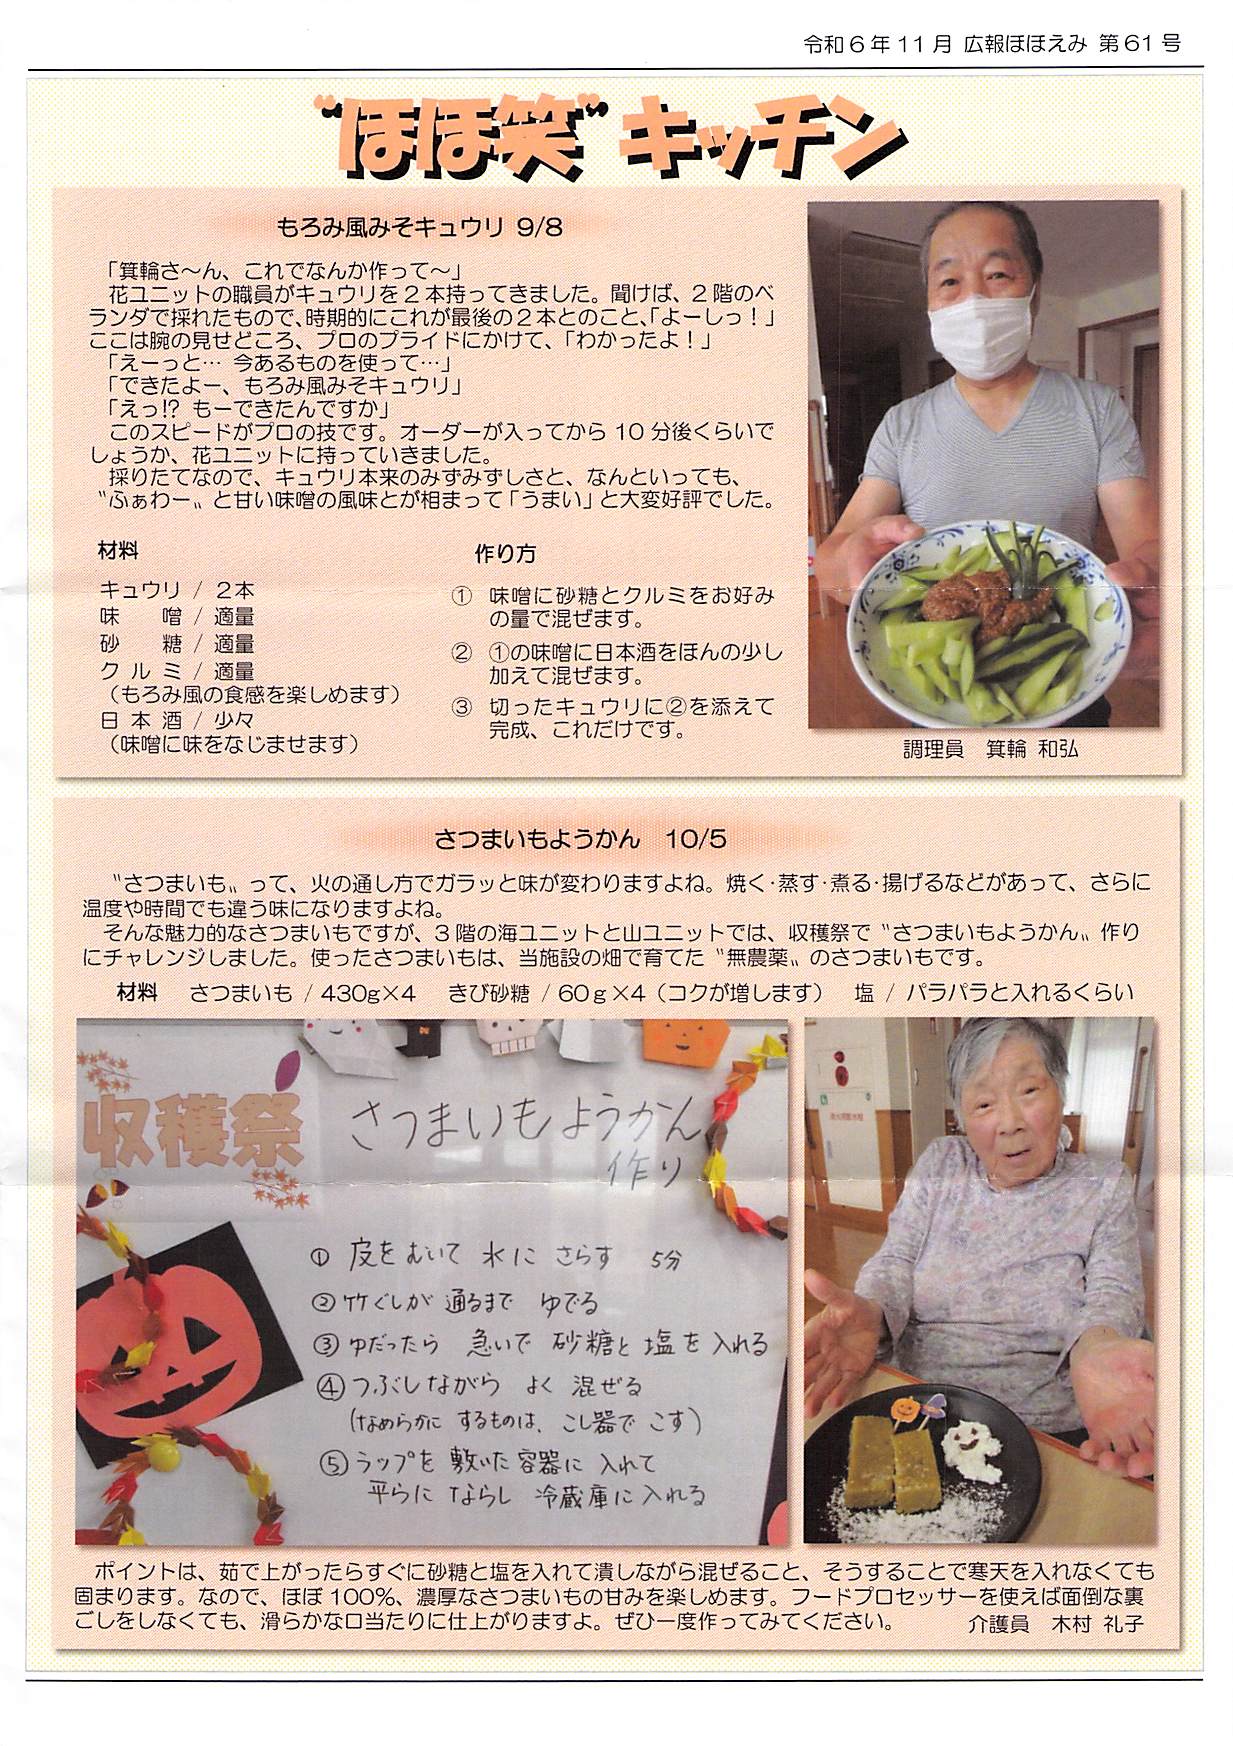 令和6年11月 広報ほほえみ 第61号
“ほほ笑”キッチン
もろみ風みそキュウリ 9/8
「箕輪さ～ん、これでなんか作って～」
花ユニットの職員がキュウリを2本持ってきました。聞けば、2階のベ
ランダで採れたもので、時期的にこれが最後の2本とのこと、「よーしっ！」
ここは腕の見せどころ、プロのプライドにかけて、「わかったよ！」
「えーっと… 今あるものを使って…」
「できたよー、もろみ風みそキュウリ」
「えっ!? もーできたんですか」
このスピードがプロの技です。オーダーが入ってから10分後くらいで
しょうか、花ユニットに持っていきました。
採りたてなので、キュウリ本来のみずみずしさと、なんといっても、
〝ふぁわー〟と甘い味噌の風味とが相まって「うまい」と大変好評でした。
材料
キュウリ / 2本
味　噌 / 適量
砂　糖 / 適量
クルミ / 適量
（もろみ風の食感を楽しめます）
日本酒 / 少々
（味噌に味をなじませます）
作り方
① 味噌に砂糖とクルミをお好み
の量で混ぜます。
② ①の味噌に日本酒をほんの少し
加えて混ぜます。
③ 切ったキュウリに②を添えて
完成、これだけです。
調理員　箕輪 和弘
さつまいもようかん　10/5
〝さつまいも〟って、火の通し方でガラッと味が変わりますよね。焼く・蒸す・煮る・揚げるなどがあって、さらに
温度や時間でも違う味になりますよね。
そんな魅力的なさつまいもですが、3階の海ユニットと山ユニットでは、収穫祭で〝さつまいもようかん〟作り
にチャレンジしました。使ったさつまいもは、当施設の畑で育てた〝無農薬〟のさつまいもです。
材料　さつまいも / 430g×4　きび砂糖 / 60g×4（コクが増します）　塩 / パラパラと入れるくらい
収穫祭
さつまいもようかん
作り
① 皮をむいて 水に さらす 5分
② 竹ぐしが 通るまで ゆでる
③ ゆだったら 急いで 砂糖と 塩を 入れる
④ つぶしながら よく 混ぜる
(なめらかに するものは、こし器で こす)
⑤ ラップを 敷いた 容器に 入れて
平らに ならし 冷蔵庫に 入れる
ポイントは、茹で上がったらすぐに砂糖と塩を入れて潰しながら混ぜること、そうすることで寒天を入れなくても
固まります。なので、ほぼ100%、濃厚なさつまいもの甘みを楽しめます。フードプロセッサーを使えば面倒な裏
ごしをしなくても、滑らかな口当たりに仕上がりますよ。ぜひ一度作ってみてください。　介護員　木村 礼子